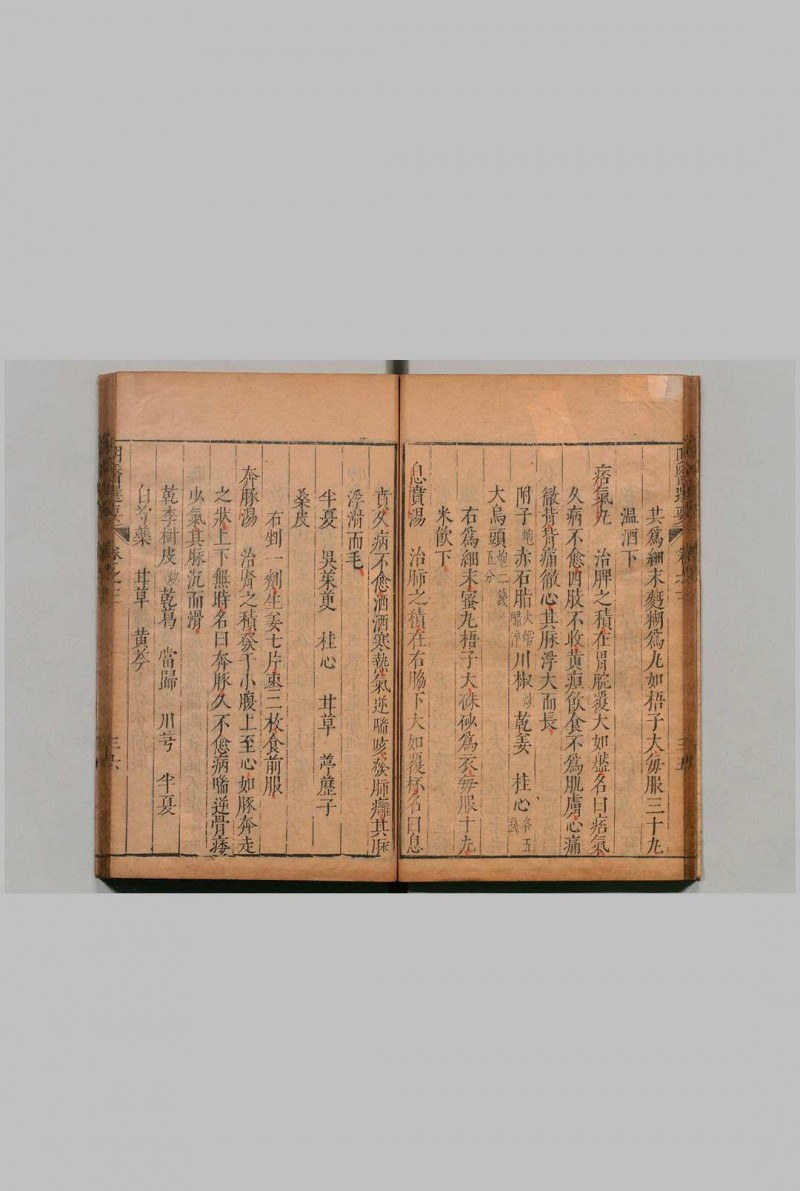 其爲細末麪糊爲丸如梧子大每服三十丸
温酒下
痞氣丸　治脾之積在胃脘覆大如盤名曰痞氣
久病不愈四肢不收黄疸飲食不爲肌膚心痛
徹背背痛徹心其脉浮大而長
附子炮赤石脂火煅醋淬川椒炒乾姜　桂心各五錢
大烏頭炮二錢五分
右爲細末蜜丸梧子大硃砂爲衣每服十丸
米飲下
息賁湯　治肺之積在右脇下大如覆杯名曰息
賁久病不愈洒洒寒熱氣逆喘咳發肺癰其脉
浮濇而毛
半夏　吳茱萸　桂心　甘草　葶藶子
桑皮
右剉一劑生姜七片棗二枚食前服
奔豚湯　治腎之積發于小腹上至心如豚奔走
之狀上下無時名曰奔豚久不愈病喘逆骨痿
少氣其脉沉而滑
乾李樹皮炒乾葛　當歸　川芎　半夏
白芍藥　甘草　黄芩
明醫選要　卷之三　三十六